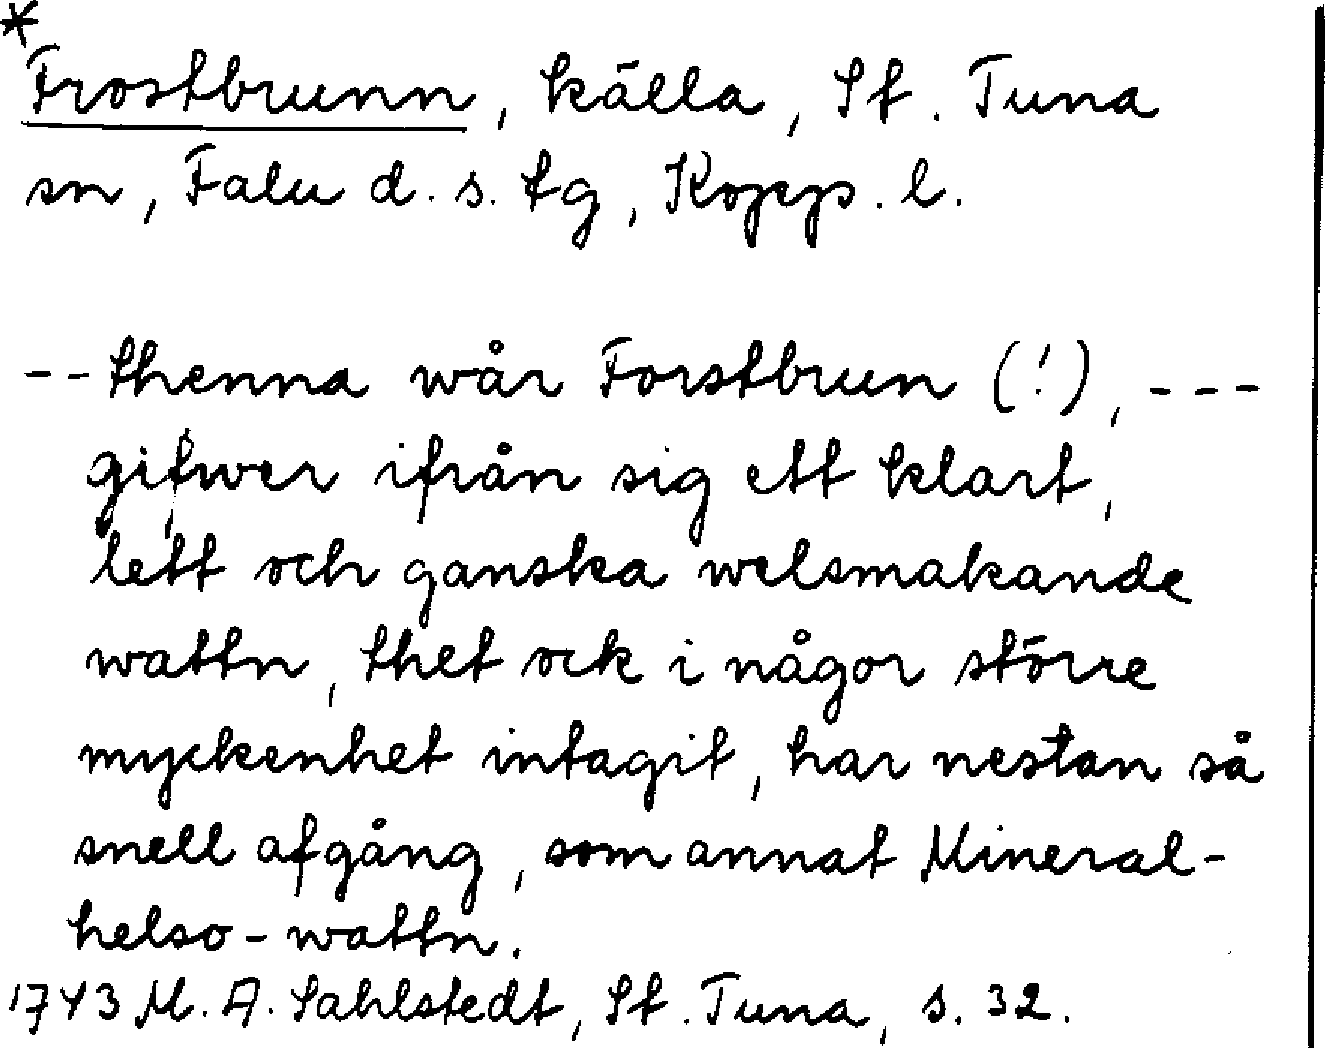 *
Frostbrunn, källa, St. Tuna
sn, Falu d. s. tg, Kopp. l.
-- thenna wår Forstbrun (!), ---
gifwer ifrån sig ett klart,
lett och ganska welsmakande
wattn, thet ock i någor större
myckenhet intagit, har nestan så
snell afgång, som annat Mineral-
helso-wattn.
1743 M. A. Sahlstedt, St. Tuna, s. 32.